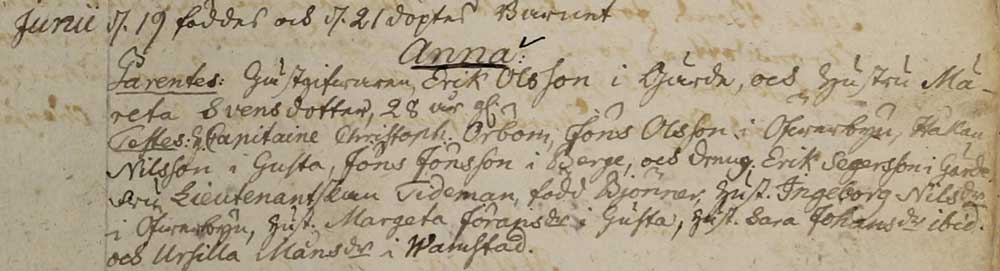 Junii d. 19 föddes och d. 21 döptes Barnet
Anna:
Parentes: Gästgifwaren Erik Olsson i Gärde, och Hustru Mä-
reta Svensdotter, 28 år gl.
Testes: Capitaine Christoph. Örbom, Jöns Olsson i Ofwerbyn, Håkan
Nilsson i Gusta, Jöns Jönsson i Berge, och dräng. Erik Segersson i Gärde
Fru Lieutenantskan Tideman, född Björner, Hust. Ingeborg Nilsdr
i Ofwerbyn, Hust. Margeta Jöransdr i Gusta, Hust. Sara Johansdr ibid.
och Ursilla Månsdr i Wamstad.